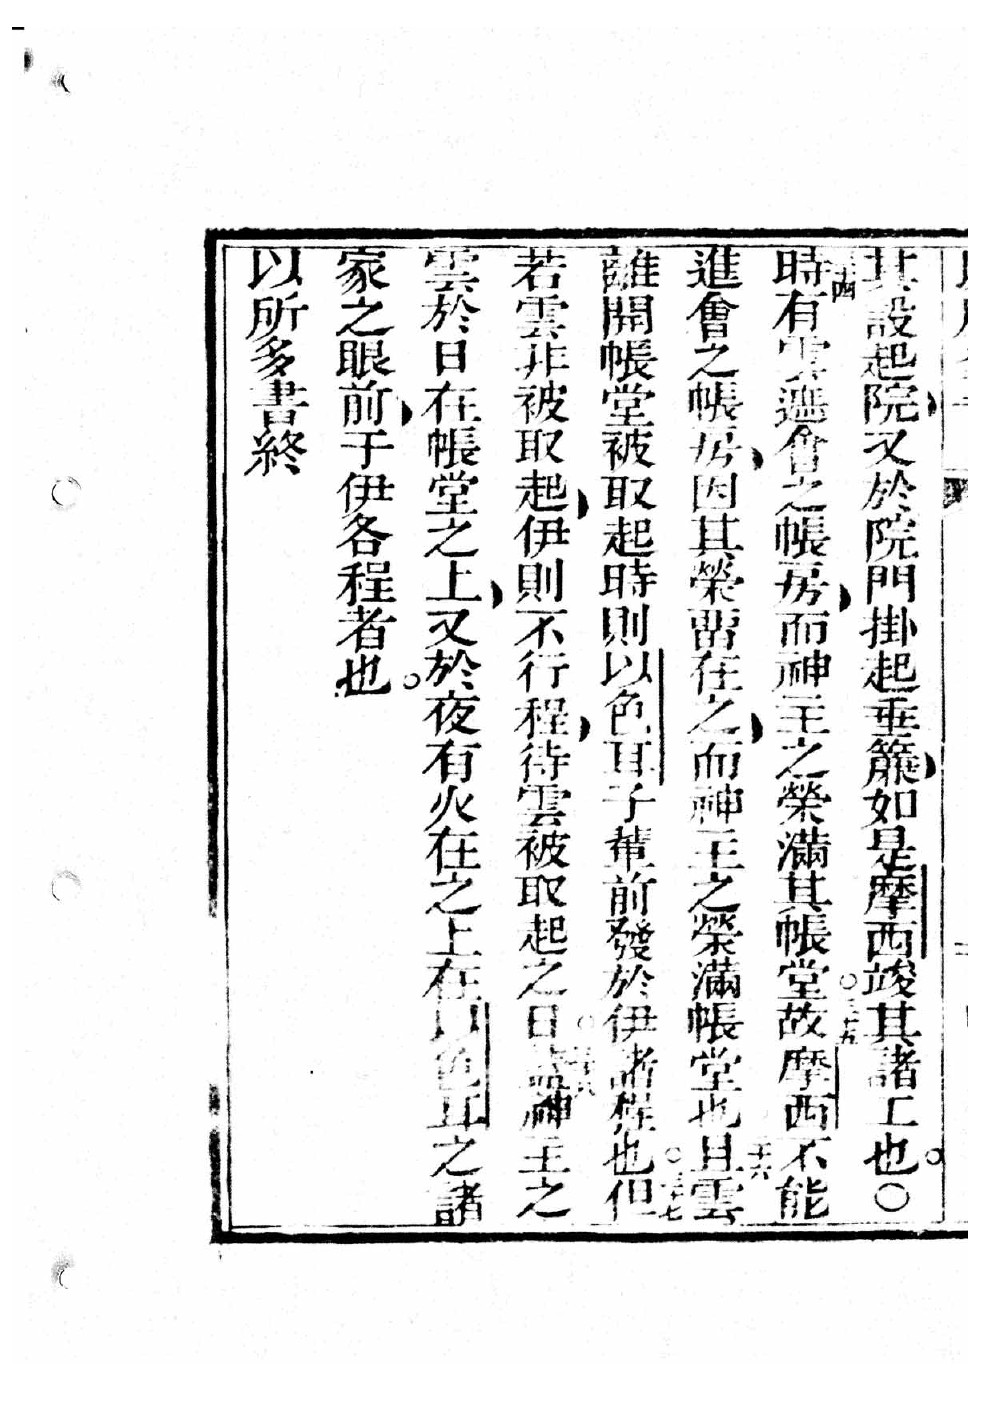 其設起院又於院門掛起垂簾如是摩西竣其諸工也〇
時有雲遮會之帳房而神主之榮滿其帳堂故摩西不能
進會之帳房因其榮畱在之而神主之榮滿帳堂也且雲
離開帳堂被取起時則以色耳子輩前發於伊諸程也但
若雲非被取起伊則不行程待雲被取起之日蓋神主之
雲於日在帳堂之上又於夜有火在之上在以色耳之諸
家之眼前于伊各程者也
以所多書終